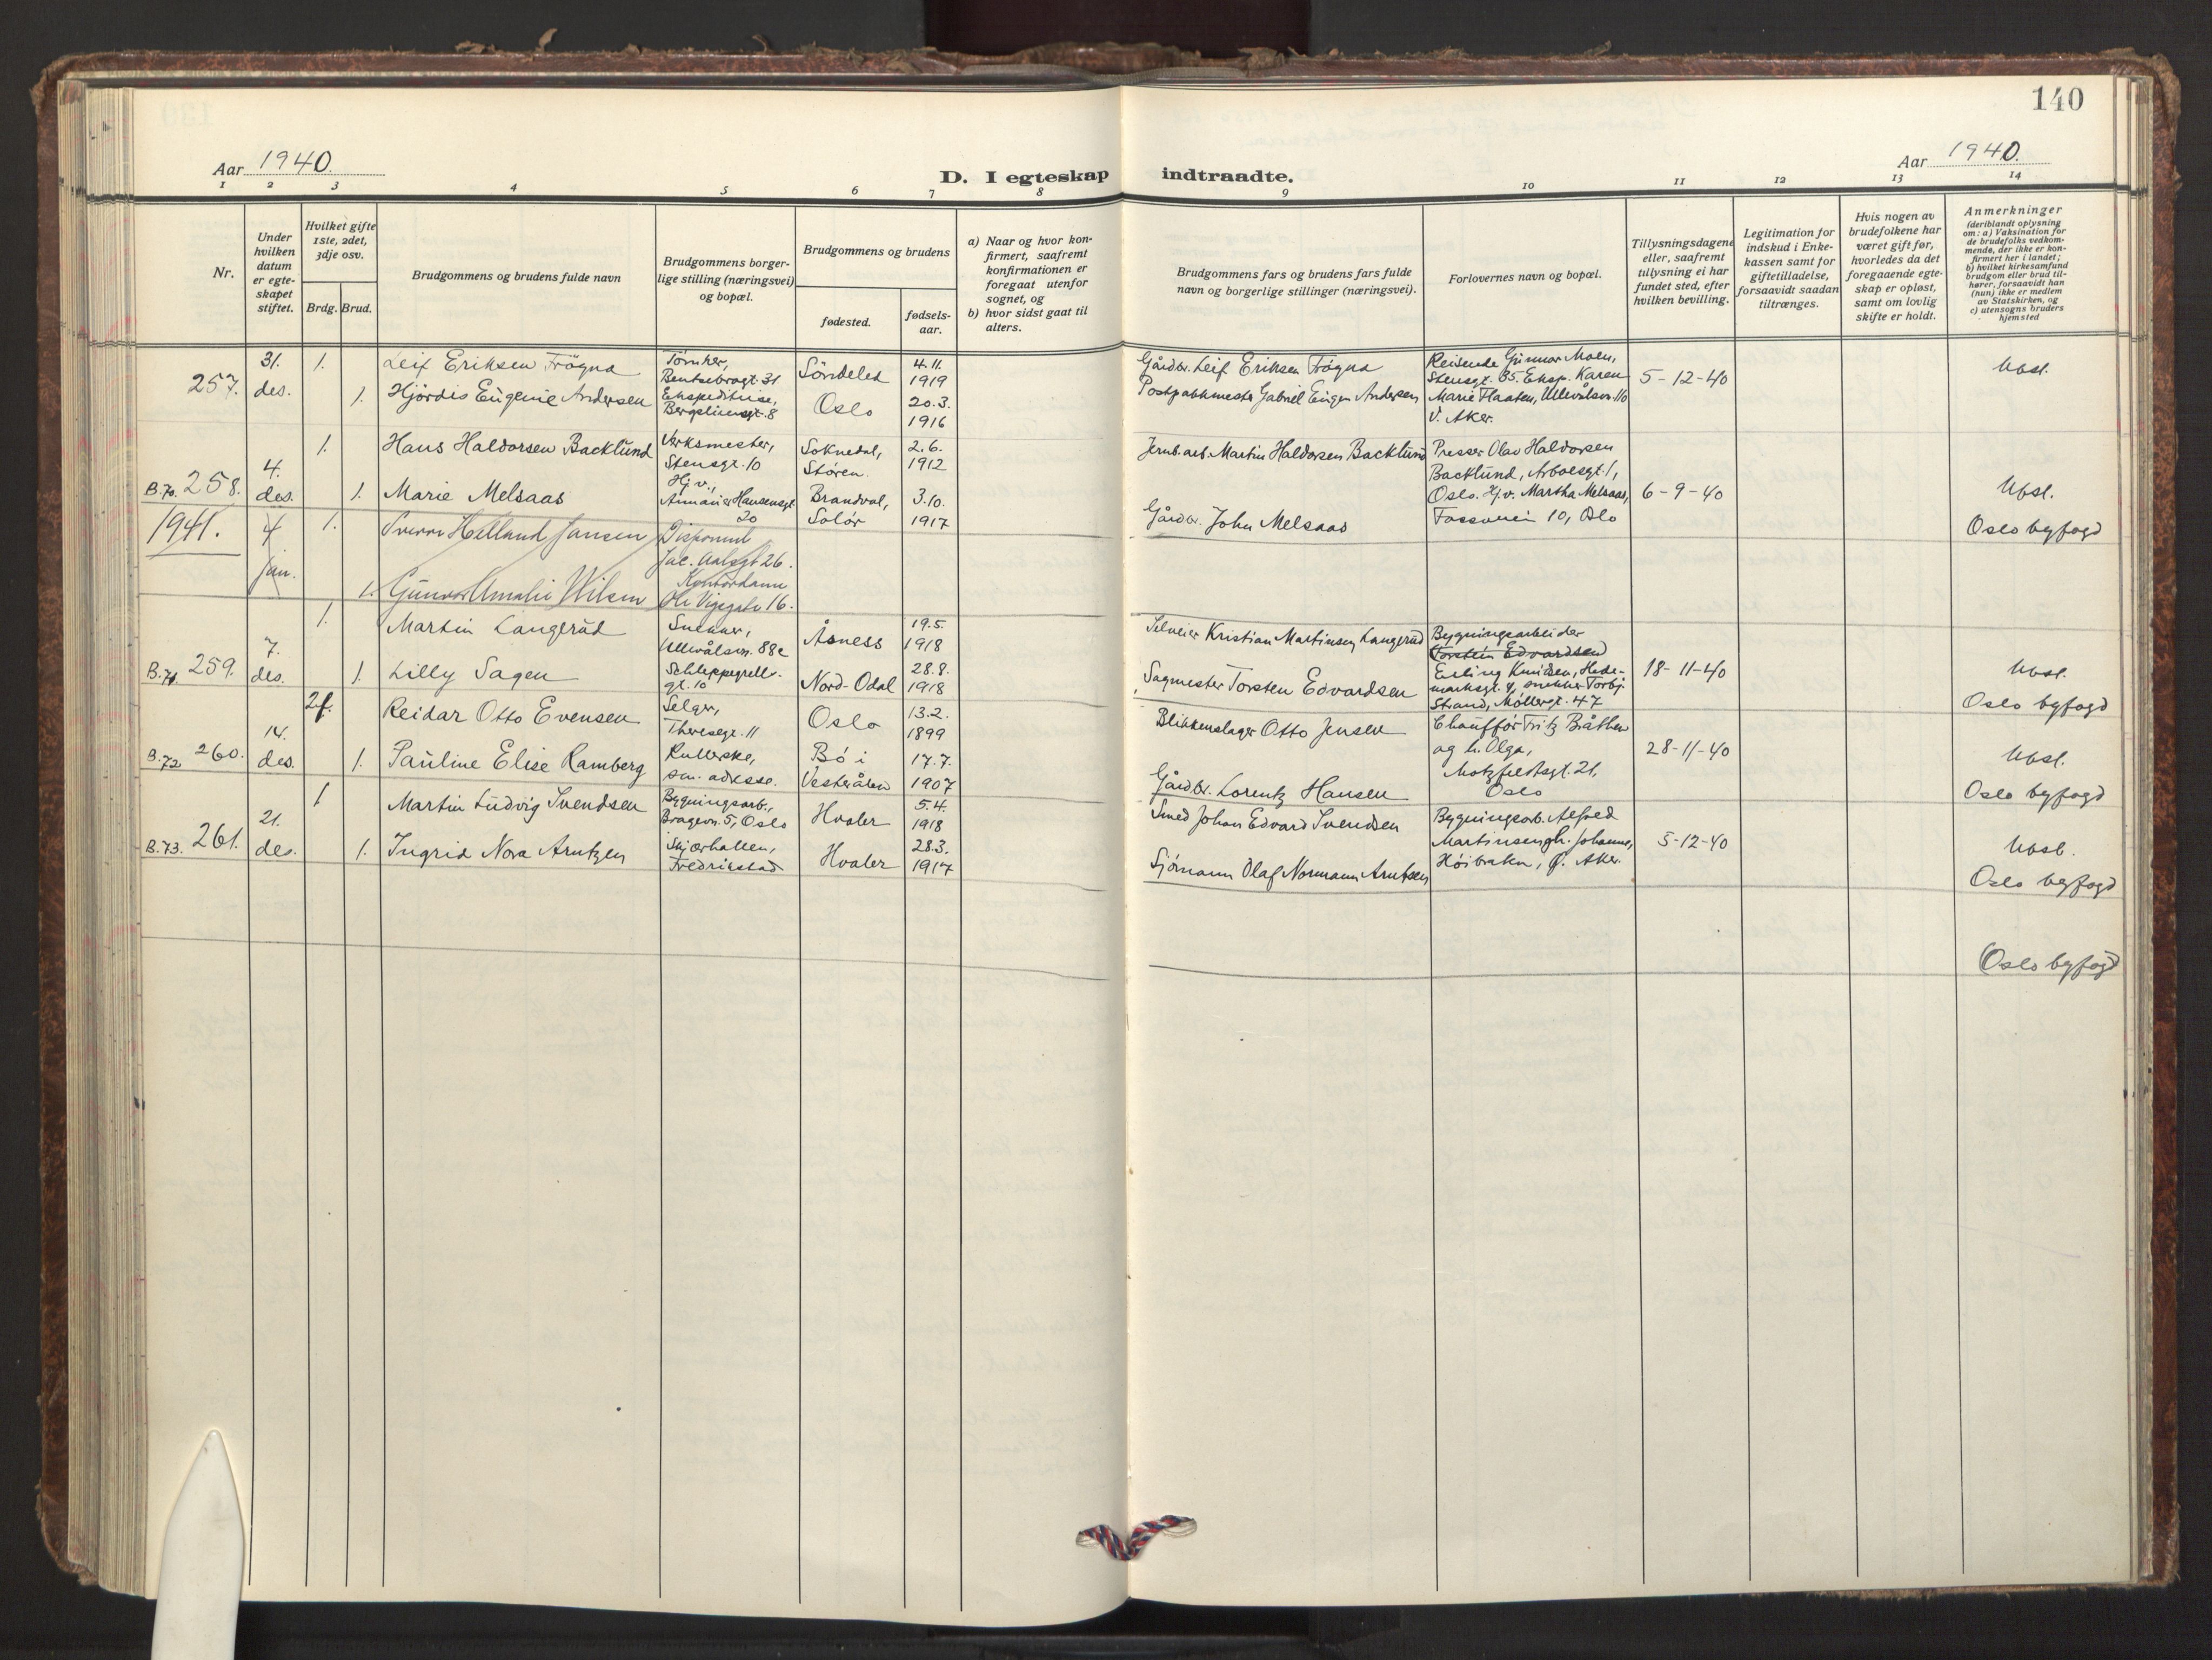 140
Aar 1940.
D. I egteskap indtraadte.
Aar 1940.
1 2 3 4 5 6 7 8 9 10 11 12 13 14
Nr.
Under hvilken datum er egteskapet stiftet.
Hvilket gifte 1ste, 2det, 3dje osv.
Brdg. Brud.
Brudgommens og brudens fulde navn
Brudgommens borgerlige stilling (næringsvei) og bopæl.
Brudgommens og brudens
fødested.
fødselsaar.
a) Naar og hvor konfirmert, saafremt konfirmationen er foregaat utenfor sognet, og
b) hvor sidst gaat til alters.
Brudgommens fars og brudens fars fulde navn og borgerlige stillinger (næringsvei).
Forlovernes navn og bopæl.
Tillysningsdagene eller, saafremt tillysning ei har fundet sted, efter hvilken bevilling.
Legitimation for indskud i Enkekassen samt for giftetilladelse, forsaavidt saadan tiltrænges.
Hvis nogen av brudefolkene har været gift før, hvorledes da det foregaaende egteskap er opløst, samt om lovlig skifte er holdt.
Anmerkninger
(deriblandt oplysning om: a) Vaksination for de brudefolks vedkommende, der ikke er konfirmert her i landet;
b) hvilket kirkesamfund brudgom eller brud tilhører, forsaavidt han (hun) ikke er medlem av Statskirken, og
c) utensogns bruders hjemsted
257. 31. des.
1. Leif Eriksen Frögna
Bentsebrogt. 31
Söndeled
4.11. 1919
Gårdbr. Leif Eriksen Frögna
1. Hjördis Eugenie Andersen
Ekspeditrise,
Bergsliensgt. 8
Oslo
20.3. 1916
Postpakkmester Gabriel Eugen Andersen
Reisende Gunnar Moen,
Stensgt. 35. Eksp. Karen
Marie Flaaten, Ullevålsv. 110
V. Aker.
5-12-40
Ubsl.
B.70. 258. 4. des.
1. Hans Haldorsen Backlund
Verksmester,
Stensgt. 10
Soknedal,
Støren.
2.6. 1912
Jernb.arb. Martin Haldorsen Backlund
1. Marie Melsaas
Hj.v.,
Hansensgt
20
Brandval,
Solör
3.10. 1917
Gårdbr. John Melsaas
Presser Olav Haldorsen
Backlund, Arboesgt. 1,
Oslo. Hj.v. Martha Melsaas,
Fossveien 10, Oslo
6-9-40
Ubsl.
Oslo byfogd
1941.
4 jan.
1. Sverre Helland Jansen
Disponent
Jac. Aalsgt 26.
1. Gunvor Amalie Nilsen
Kontordame
Ole Vigsgate 16.
B.71. 259. 7. des.
1. Martin Langerud
Snekker,
Ullevålsvn. 88c
Åsness
19.5 1918
Selveier Kristian Martinsen Langerud
1. Lilly Sagen
Schleppegrells-
gt. 10
Nord-Odal
28.8. 1918
Sagmester Torsten Edvardsen
Bygningsarbeider
Torstein Edvardsen
Erling Knudsen, Hede-
marksgt. 4, snekker Torbj.
Strand, Møllergt. 47
18-11-40
Ubsl.
Oslo byfogd
B.72 260. 14. des.
2f. Reidar Otto Evensen
Selger,
Theresesgt. 11
Oslo
13.2. 1899
Blikkenslager Otto Jensen
1. Pauline Elise Ramberg
Rullerske,
sm. adresse.
Bö i
Vesterålen
17.7. 1907
Gårdbr. Lorentz Hansen
Chaufför Fritz Bråthen
og h. Olga,
Motzfeldtsgt. 21,
Oslo
28-11-40
Ubsl.
Oslo byfogd
B.73. 261. 21. des.
1 Martin Ludvig Svendsen
Bygningsarb.,
Bragevn. 5, Oslo
Hvaler
5.4. 1918
Smed Johan Edvard Svendsen
1. Ingrid Nora Arntzen
Skjærhallen,
Fredrikstad
Hvaler
28.3. 1917
Sjömann Olaf Normann Arntsen
Bygningsarb. Alfred
Martinsen og h. Johanne,
Höibraten, Ø. Aker.
5-12-40
Ubsl.
Oslo byfogd
Oslo byfogd